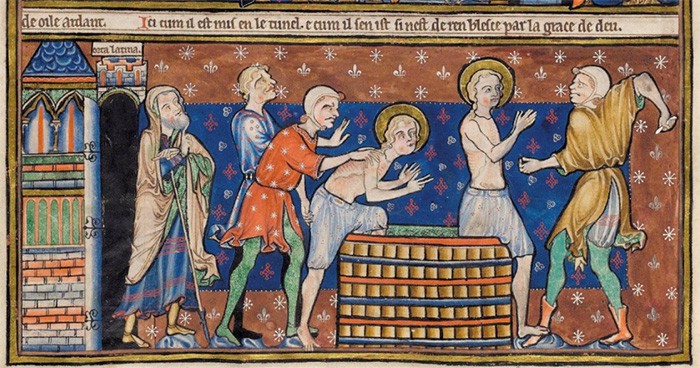 de oile ardant. Ici cum il est mis en le tunel. e cum il sen ist si nest de ren blesce par la grace de deu.
porta latina.